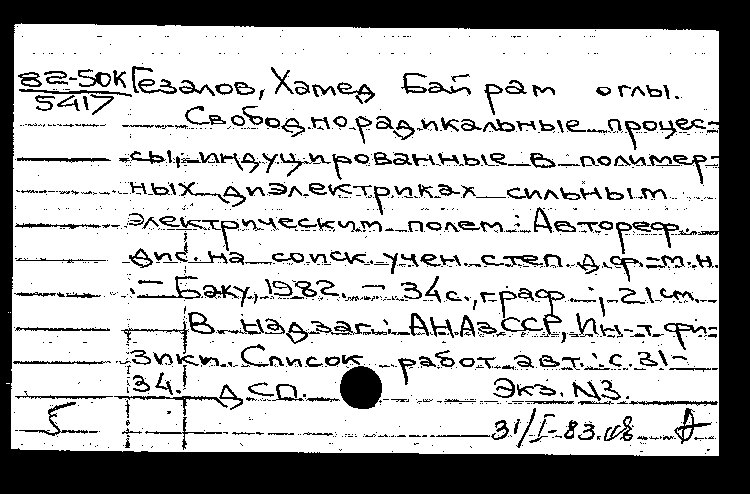 82-50К Гезалов, Хамед Байрам оглы.
5417
Свободнорадикальные процес-
сы, индуцированные в полимер-
ных диэлектриках сильным
электрическим полем: Автореф.
дис. на соиск. учен. степ. д.ф.-м.н.
.— Баку, 1982. — 34с., граф.; 21см.
В надзаг.: АНАзССР, Ин-т фи-
зики. Список работ авт.: с.31-
34. ДСП. Экз. N3.
5 31/I-83.